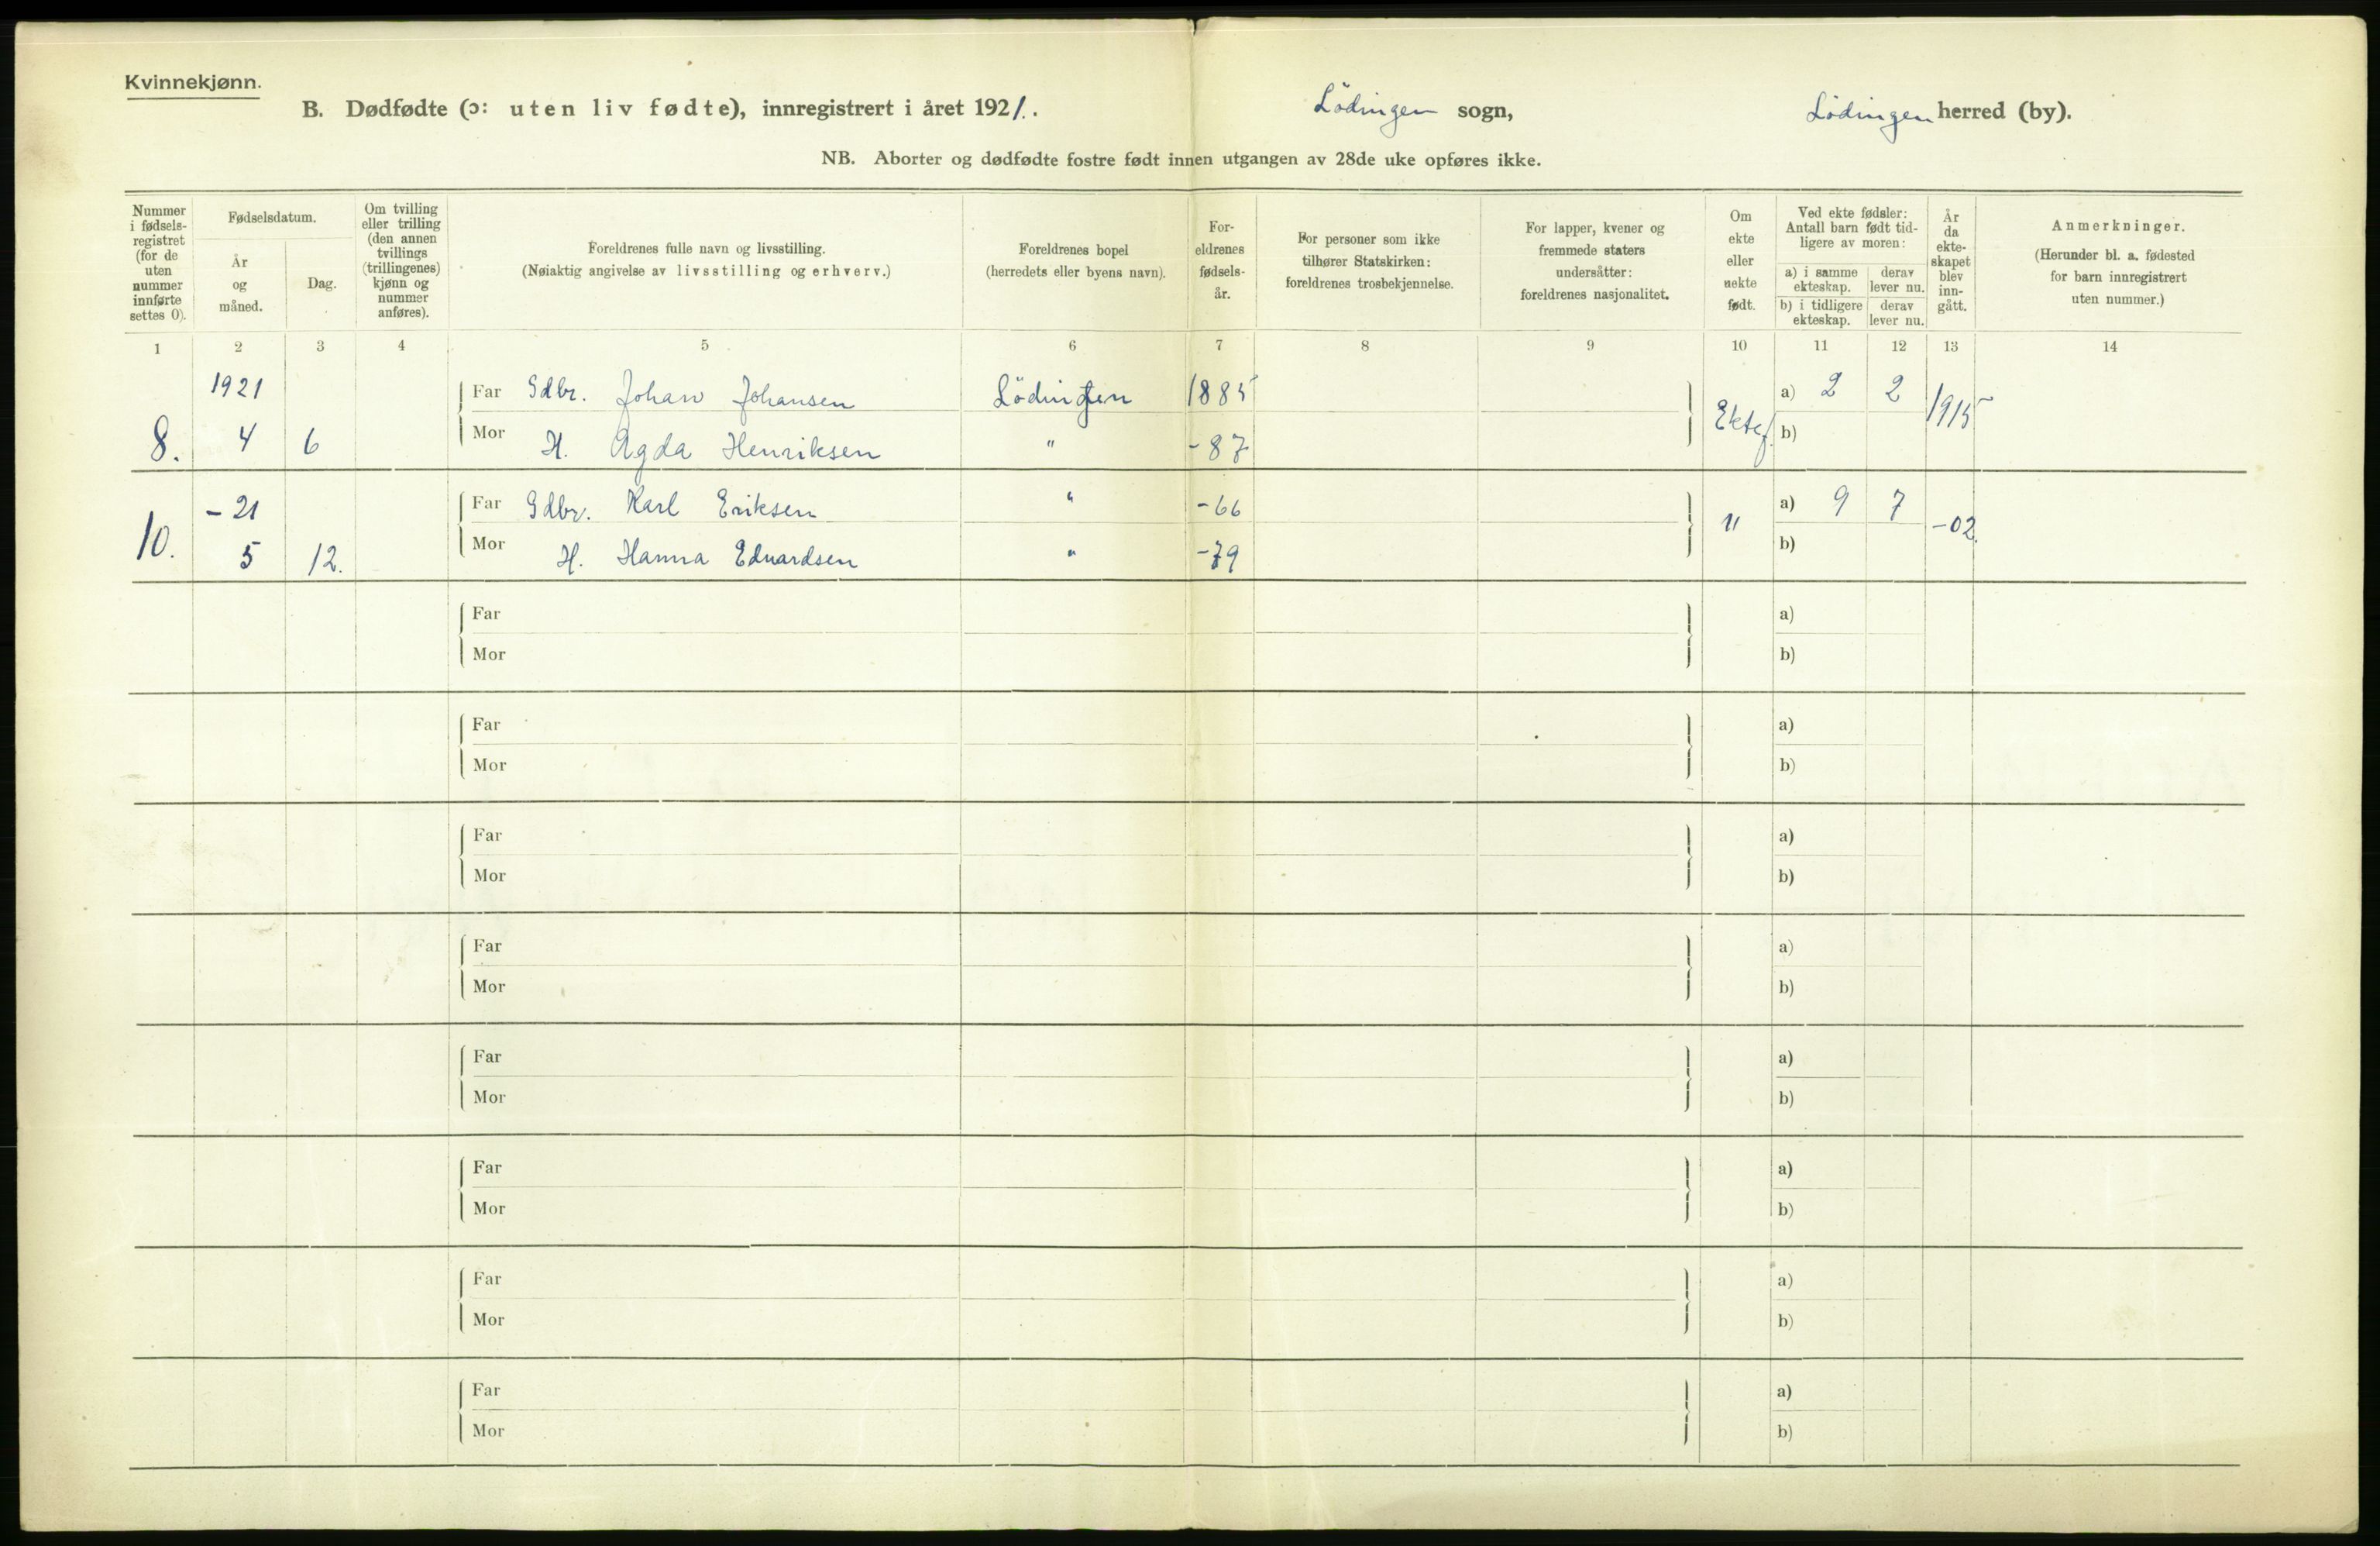 Kvinnekjønn.
B. Dødfødte (ɔ: uten liv fødte), innregistrert i året 1921.. Lödingen sogn, Lödingen herred (by).
NB. Aborter og dødfødte fostre født innen utgangen av 28de uke opføres ikke.
Nummer
i fødsels-
registret
(for de
uten
nummer
innførte
settes 0).
Fødselsdatum.
År
og
måned.
Dag.
Om tvilling
eller trilling
(den annen
tvillings
(trillingenes)
kjønn og
nummer
anføres).
Foreldrenes fulle navn og livsstilling.
(Nøiaktig angivelse av livsstilling og erhverv.)
Foreldrenes bopel
(herredets eller byens navn).
For-
eldrenes
fødsels-
år.
For personer som ikke
tilhører Statskirken:
foreldrenes trosbekjennelse.
For lapper, kvener og
fremmede staters
undersåtter:
foreldrenes nasjonalitet.
Om
ekte
eller
uekte
født.
Ved ekte fødsler:
Antall barn født tid-
ligere av moren:
a) i samme
ekteskap.
derav
lever nu.
b) i tidligere
ekteskap.
derav
lever nu.
År
da
ekte-
skapet
blev
inn-
gått.
Anmerkninger.
(Herunder bl. a. fødested
for barn innregistrert
uten nummer.)
1 2 3 4 5 6 7 8 9 10 11 12 13 14
1921 Far Gdbr. Johan Johansen Lödingen 1885 a) 2 2
8. 4 6 Mor H. Agda Henriksen " -87 Ektef. b) 1915
-21 Far Gdbr. Karl Eriksen " -66 a) 9 7
10. 5 12. Mor H. Hanna Edvardsen " -79 " b) -02.
Far a)
Mor b)
Far a)
Mor b)
Far a)
Mor b)
Far a)
Mor b)
Far a)
Mor b)
Far a)
Mor b)
Far a)
Mor b)
Far a)
Mor b)